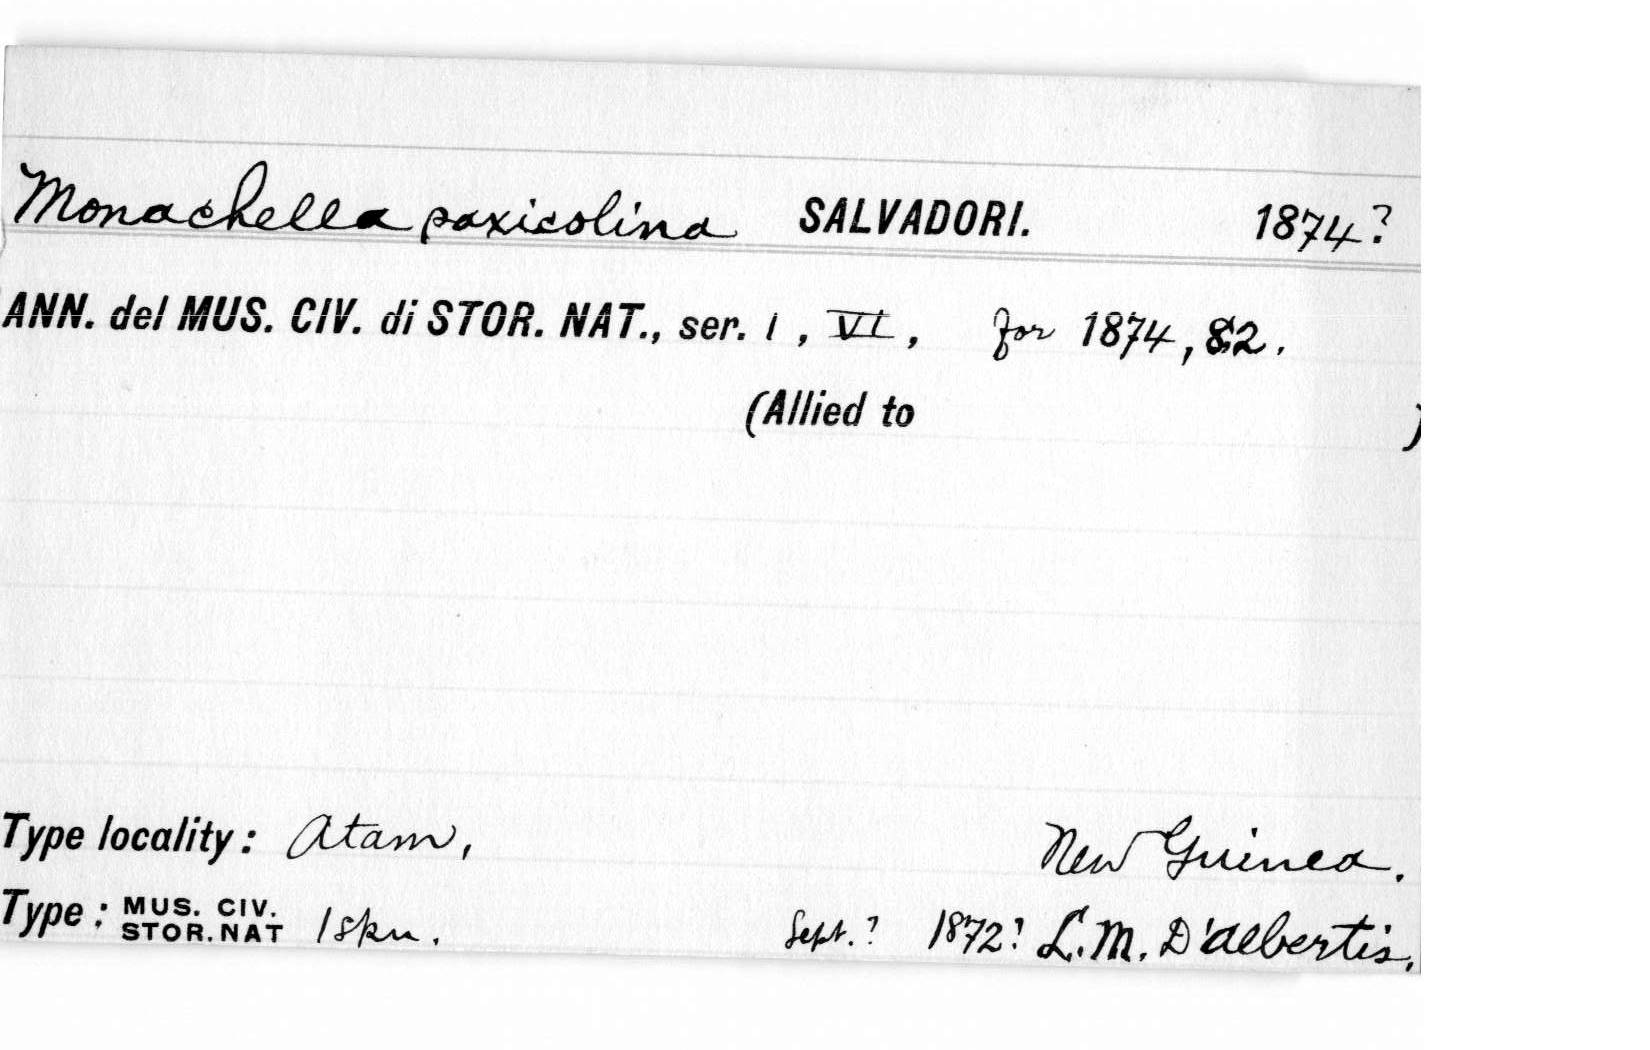 Monachella saxicolina SALVADORI. 1874?
ANN. del MUS. CIV. di STOR. NAT., ser. 1, VI, for 1874, 82.
(Allied to )
Type locality: Atam, New Guinea.
Type: MUS. CIV. STOR. NAT 1 skn. Sept.? 1872? L.M. D'Albertis.